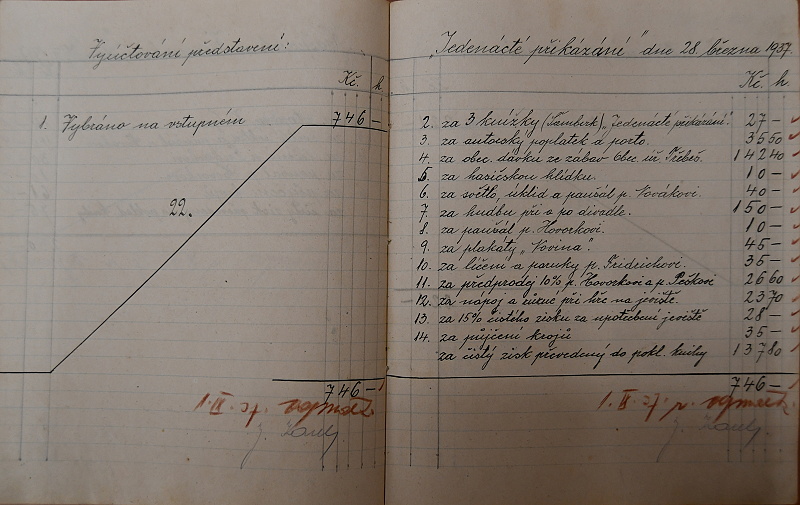 Vyúčtování představení:
Kč. h
1. Vybráno na vstupném 746 —
22.
746 —
"Jedenácté přikázání" dne 28. března 1937.
Kč. h
2. za 3 knížky (Šamberk) "Jedenácté přikázání". 27 —
3. za autorský poplatek a porto. 35 50
4. za obec. dávku ze zábav Obec. úř. Třebeš. 142 40
5. za hasičskou hlídku. 10 —
6. za světlo, úklid a paušál p. Novákovi. 40 —
7. za hudbu při a po divadle. 150 —
8. za paušál p. Hovorkovi. 10 —
9. za plakáty "Novina". 45 —
10. za líčení a paruky p. Fridrichovi. 35 —
11. za předprodej 10% p. Hovorkovi a p. Peškovi 26 60
12. za nápoj a cukroví při hře na jevišti. 23 70
13. za 15% čistého zisku za upotřebení jeviště 28 —
14. za půjčení krojů 35 —
za čistý zisk převedený do pokl. knihy 137 80
746 —